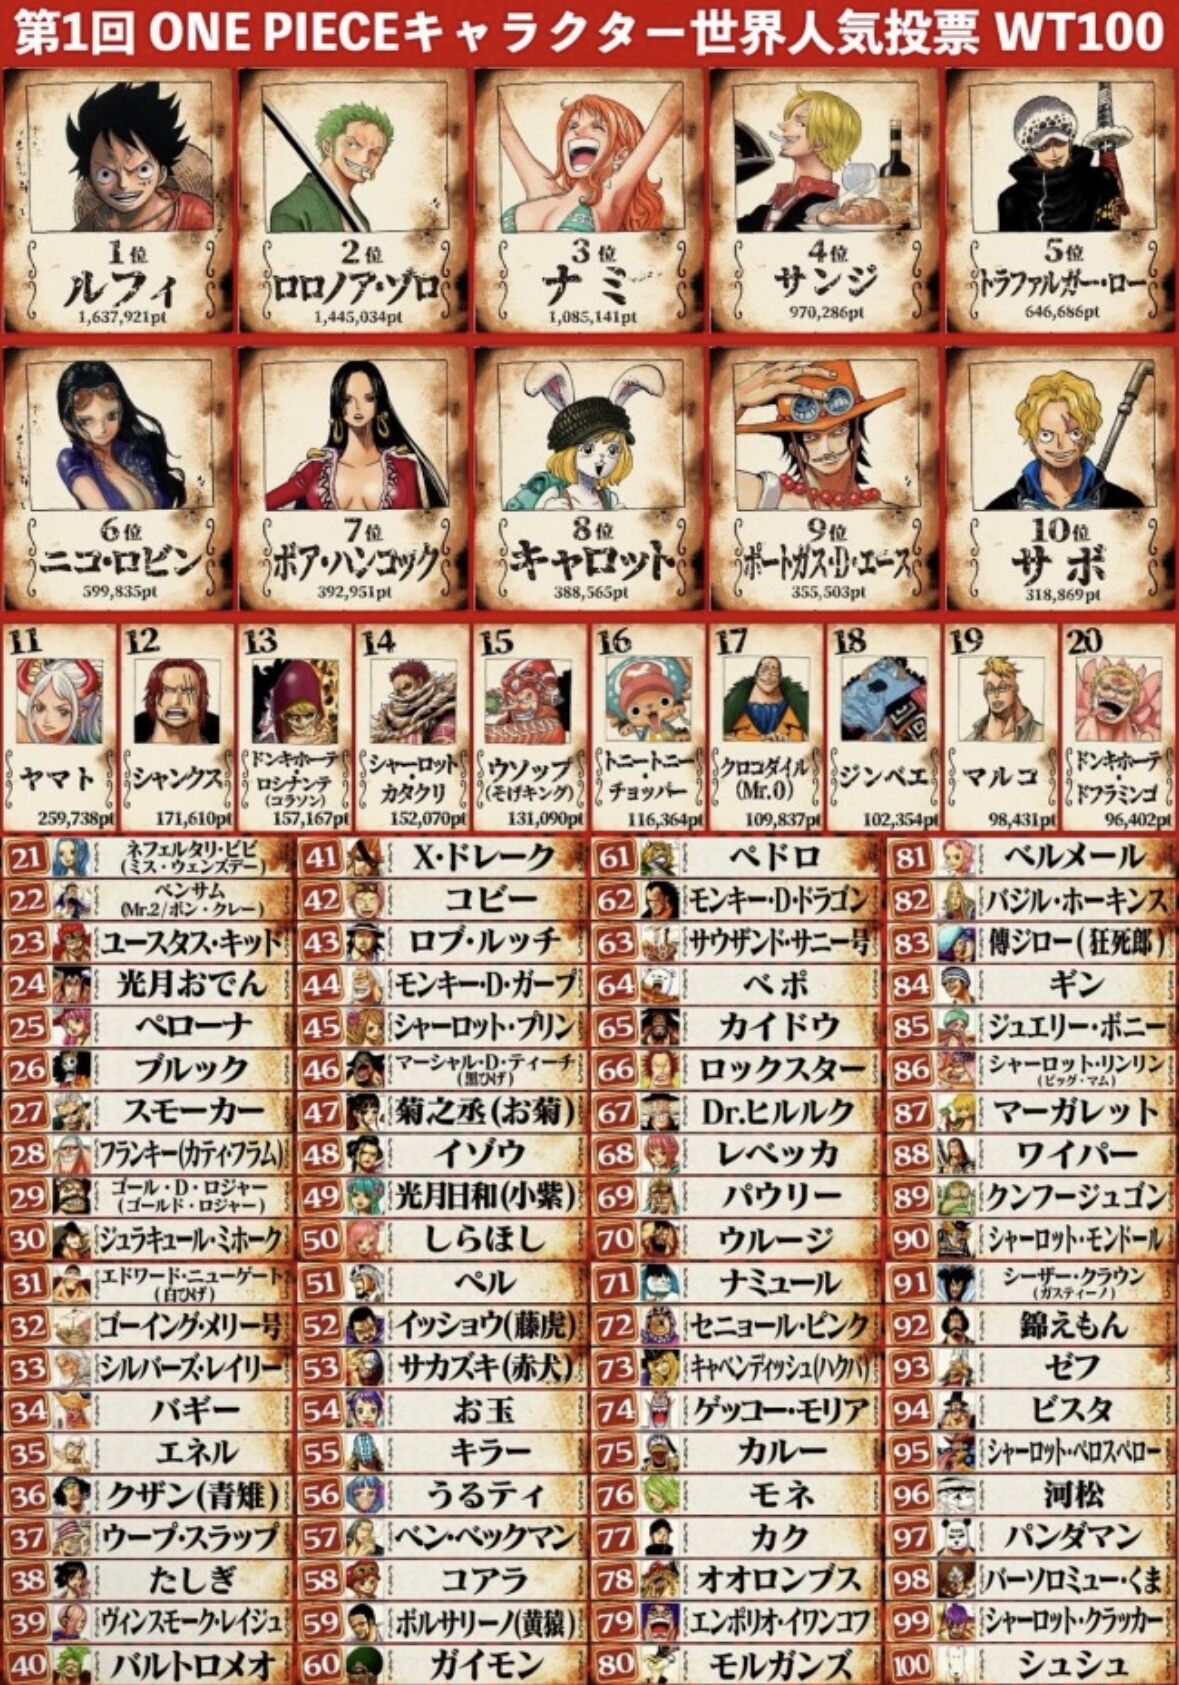 第1回 ONE PIECEキャラクター世界人気投票 WT100
1位
ルフィ
1,637,921pt
2位
ロロノア・ゾロ
1,445,034pt
3位
ナミ
1,085,141pt
4位
サンジ
970,286pt
5位
トラファルガー・ロー
646,686pt
6位
ニコ・ロビン
599,835pt
7位
ボア・ハンコック
392,951pt
8位
キャロット
388,565pt
9位
ポートガス・D・エース
355,503pt
10位
サボ
318,869pt
11
ヤマト
259,738pt
12
シャンクス
171,610pt
13
ドンキホーテ
・
ロシナンテ
(コラソン)
157,167pt
14
シャーロット
・
カタクリ
152,070pt
15
ウソップ
(そげキング)
131,090pt
16
トニートニー
・
チョッパー
116,364pt
17
クロコダイル
(Mr.0)
109,837pt
18
ジンベエ
102,354pt
19
マルコ
98,431pt
20
ドンキホーテ
・
ドフラミンゴ
96,402pt
21 ネフェルタリ・ビビ
(ミス・ウェンズデー)
22 ベンサム
(Mr.2/ボン・クレー)
23 ユースタス・キッド
24 光月おでん
25 ペローナ
26 ブルック
27 スモーカー
28 フランキー(カティ・フラム)
29 ゴール・D・ロジャー
(ゴールド・ロジャー)
30 ジュラキュール・ミホーク
31 エドワード・ニューゲート
(白ひげ)
32 ゴーイング・メリー号
33 シルバーズ・レイリー
34 バギー
35 エネル
36 クザン(青雉)
37 ウープ・スラップ
38 たしぎ
39 ヴィンスモーク・レイジュ
40 バルトロメオ
41 X・ドレーク
42 コビー
43 ロブ・ルッチ
44 モンキー・D・ガープ
45 シャーロット・プリン
46 マーシャル・D・ティーチ
(黒ひげ)
47 菊之丞(お菊)
48 イゾウ
49 光月日和(小紫)
50 しらほし
51 ペル
52 イッショウ(藤虎)
53 サカズキ(赤犬)
54 お玉
55 キラー
56 うるティ
57 ベン・ベックマン
58 コアラ
59 ボルサリーノ(黄猿)
60 ガイモン
61 ペドロ
62 モンキー・D・ドラゴン
63 サウザンド・サニー号
64 ベポ
65 カイドウ
66 ロックスター
67 Dr.ヒルルク
68 レベッカ
69 パウリー
70 ウルージ
71 ナミュール
72 セニョール・ピンク
73 キャベンディッシュ(ハクバ)
74 ゲッコー・モリア
75 カルー
76 モネ
77 カク
78 オオロンブス
79 エンポリオ・イワンコフ
80 モルガンズ
81 ベルメール
82 バジル・ホーキンス
83 傳ジロー(狂死郎)
84 ギン
85 ジュエリー・ボニー
86 シャーロット・リンリン
(ビッグ・マム)
87 マーガレット
88 ワイパー
89 クンフージュゴン
90 シャーロット・モンドール
91 シーザー・クラウン
(ガスティーノ)
92 錦えもん
93 ゼフ
94 ビスタ
95 シャーロット・ペロスペロー
96 河松
97 パンダマン
98 バーソロミュー・くま
99 シャーロット・クラッカー
100 シュシュ